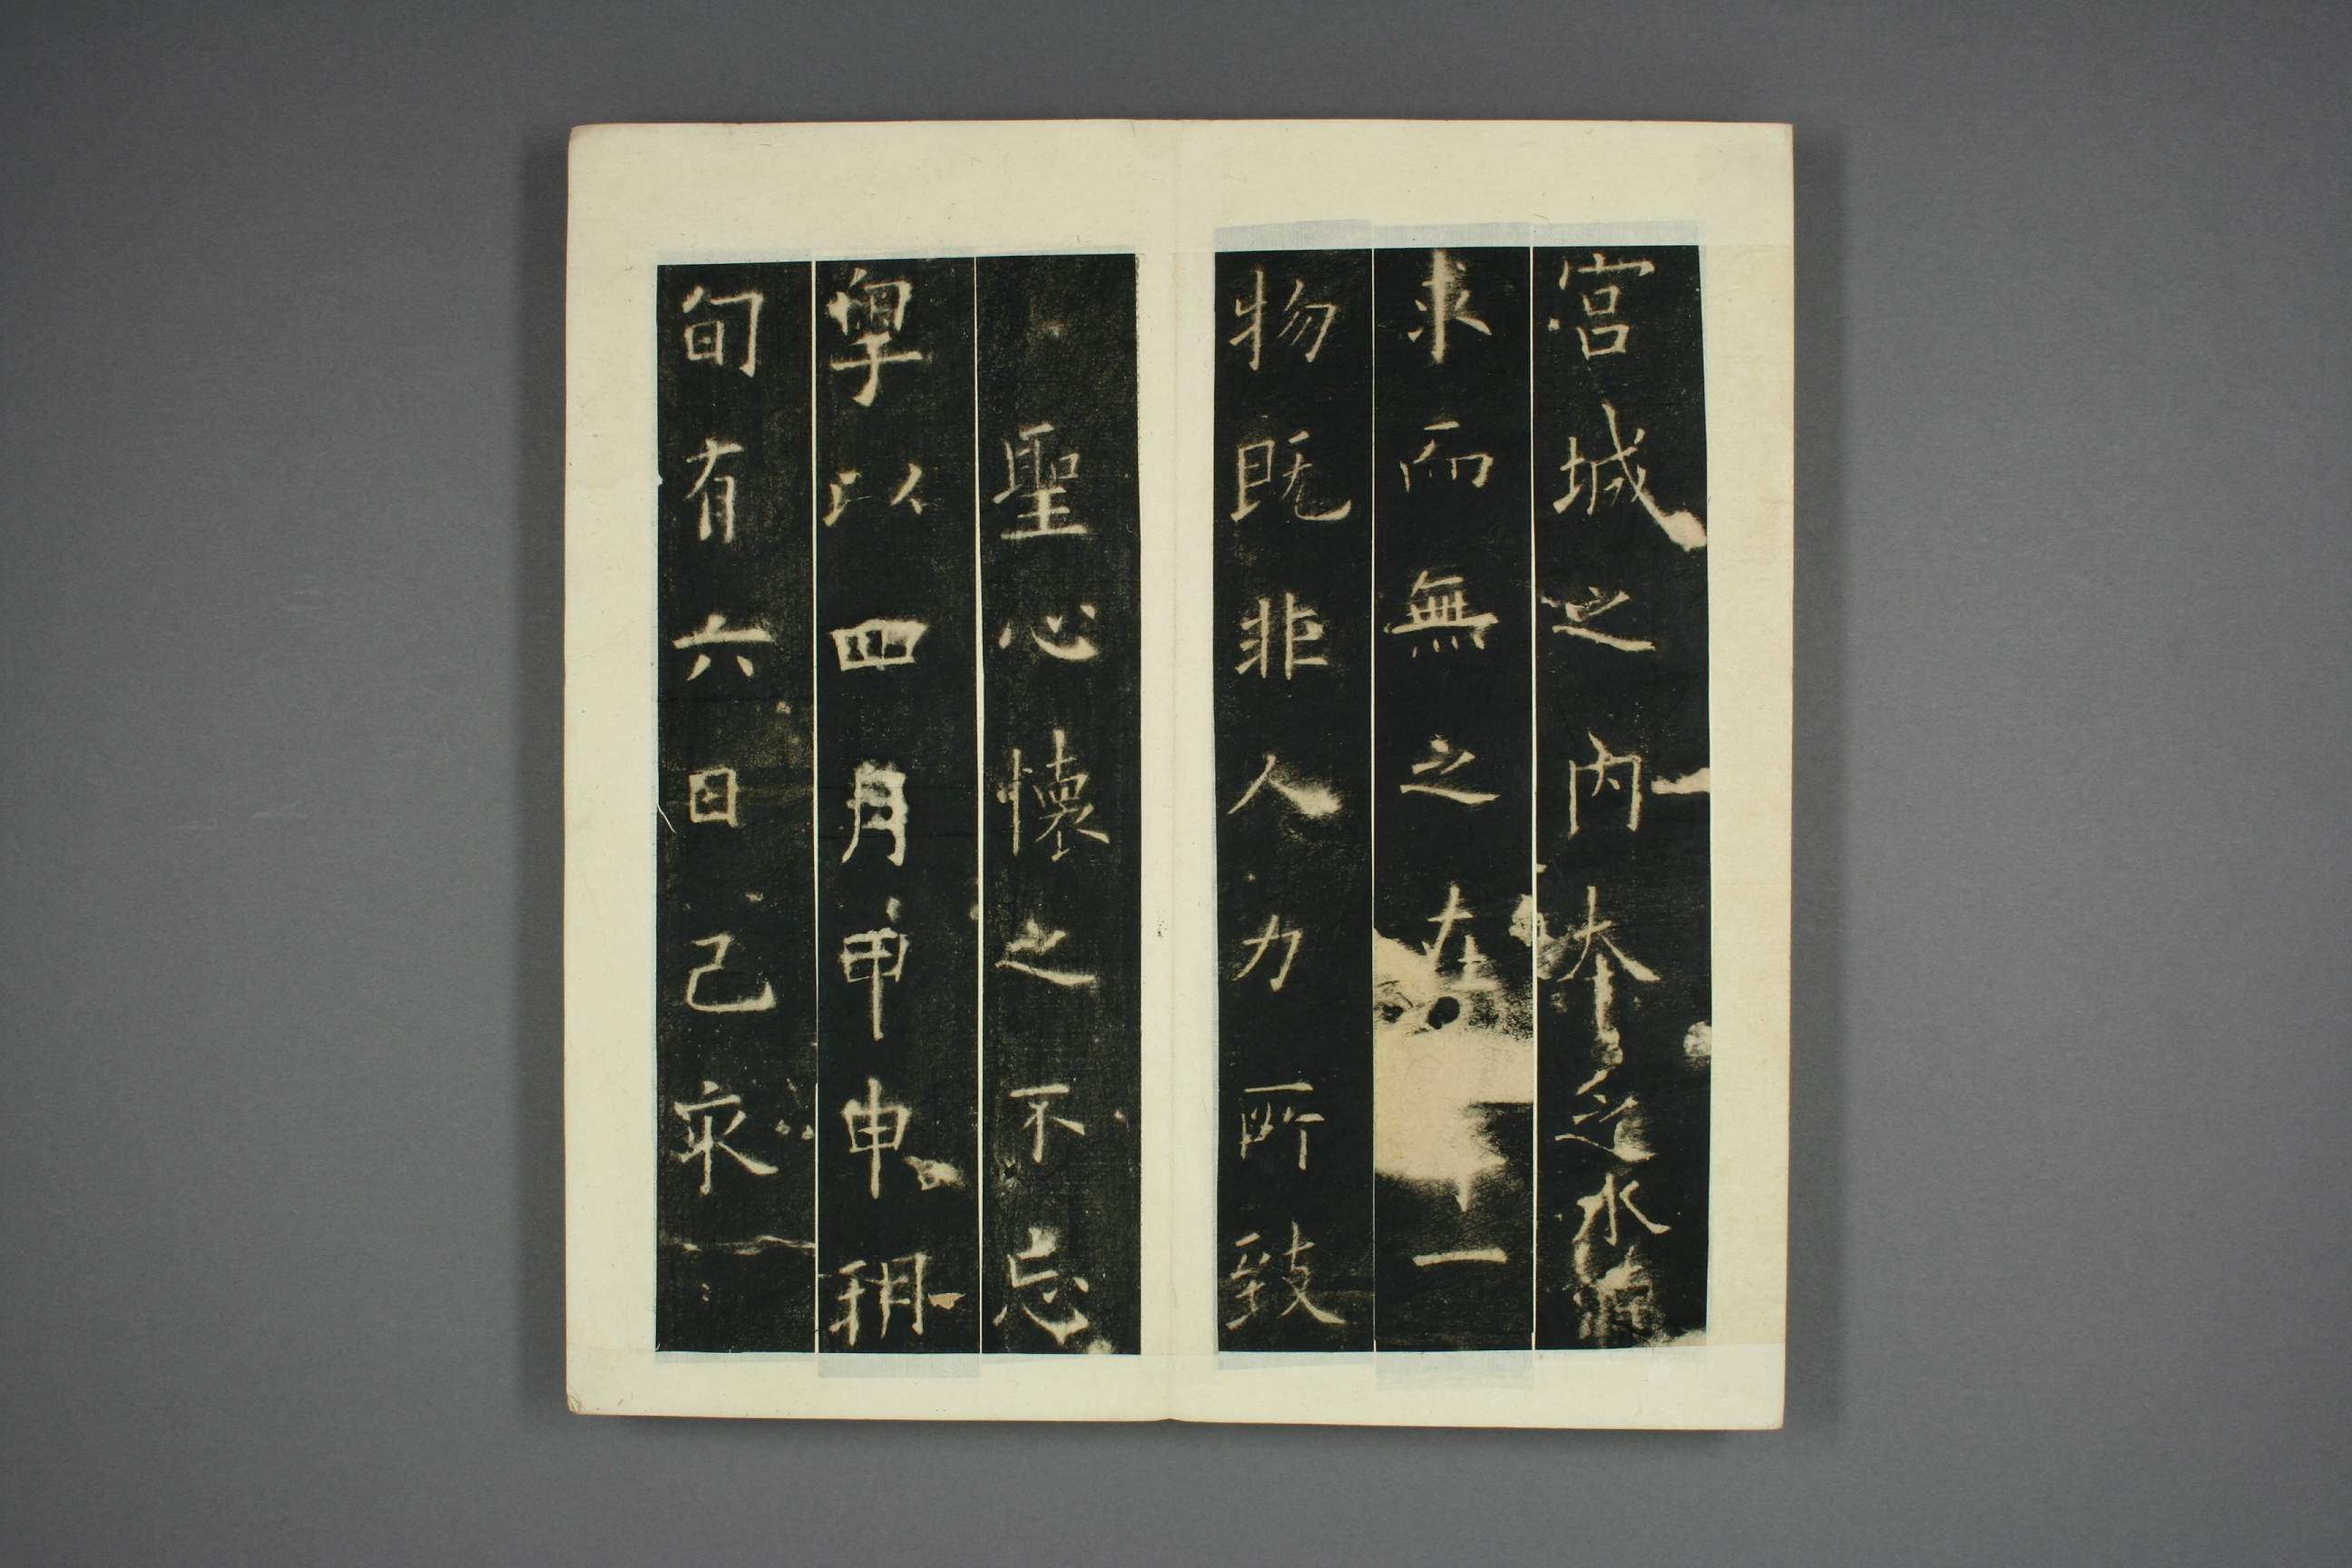 宮城之內本乏水源
求而無之在一
物既非人力所致
聖心懷之不忘
粵以四月甲申朔
旬有六日己亥